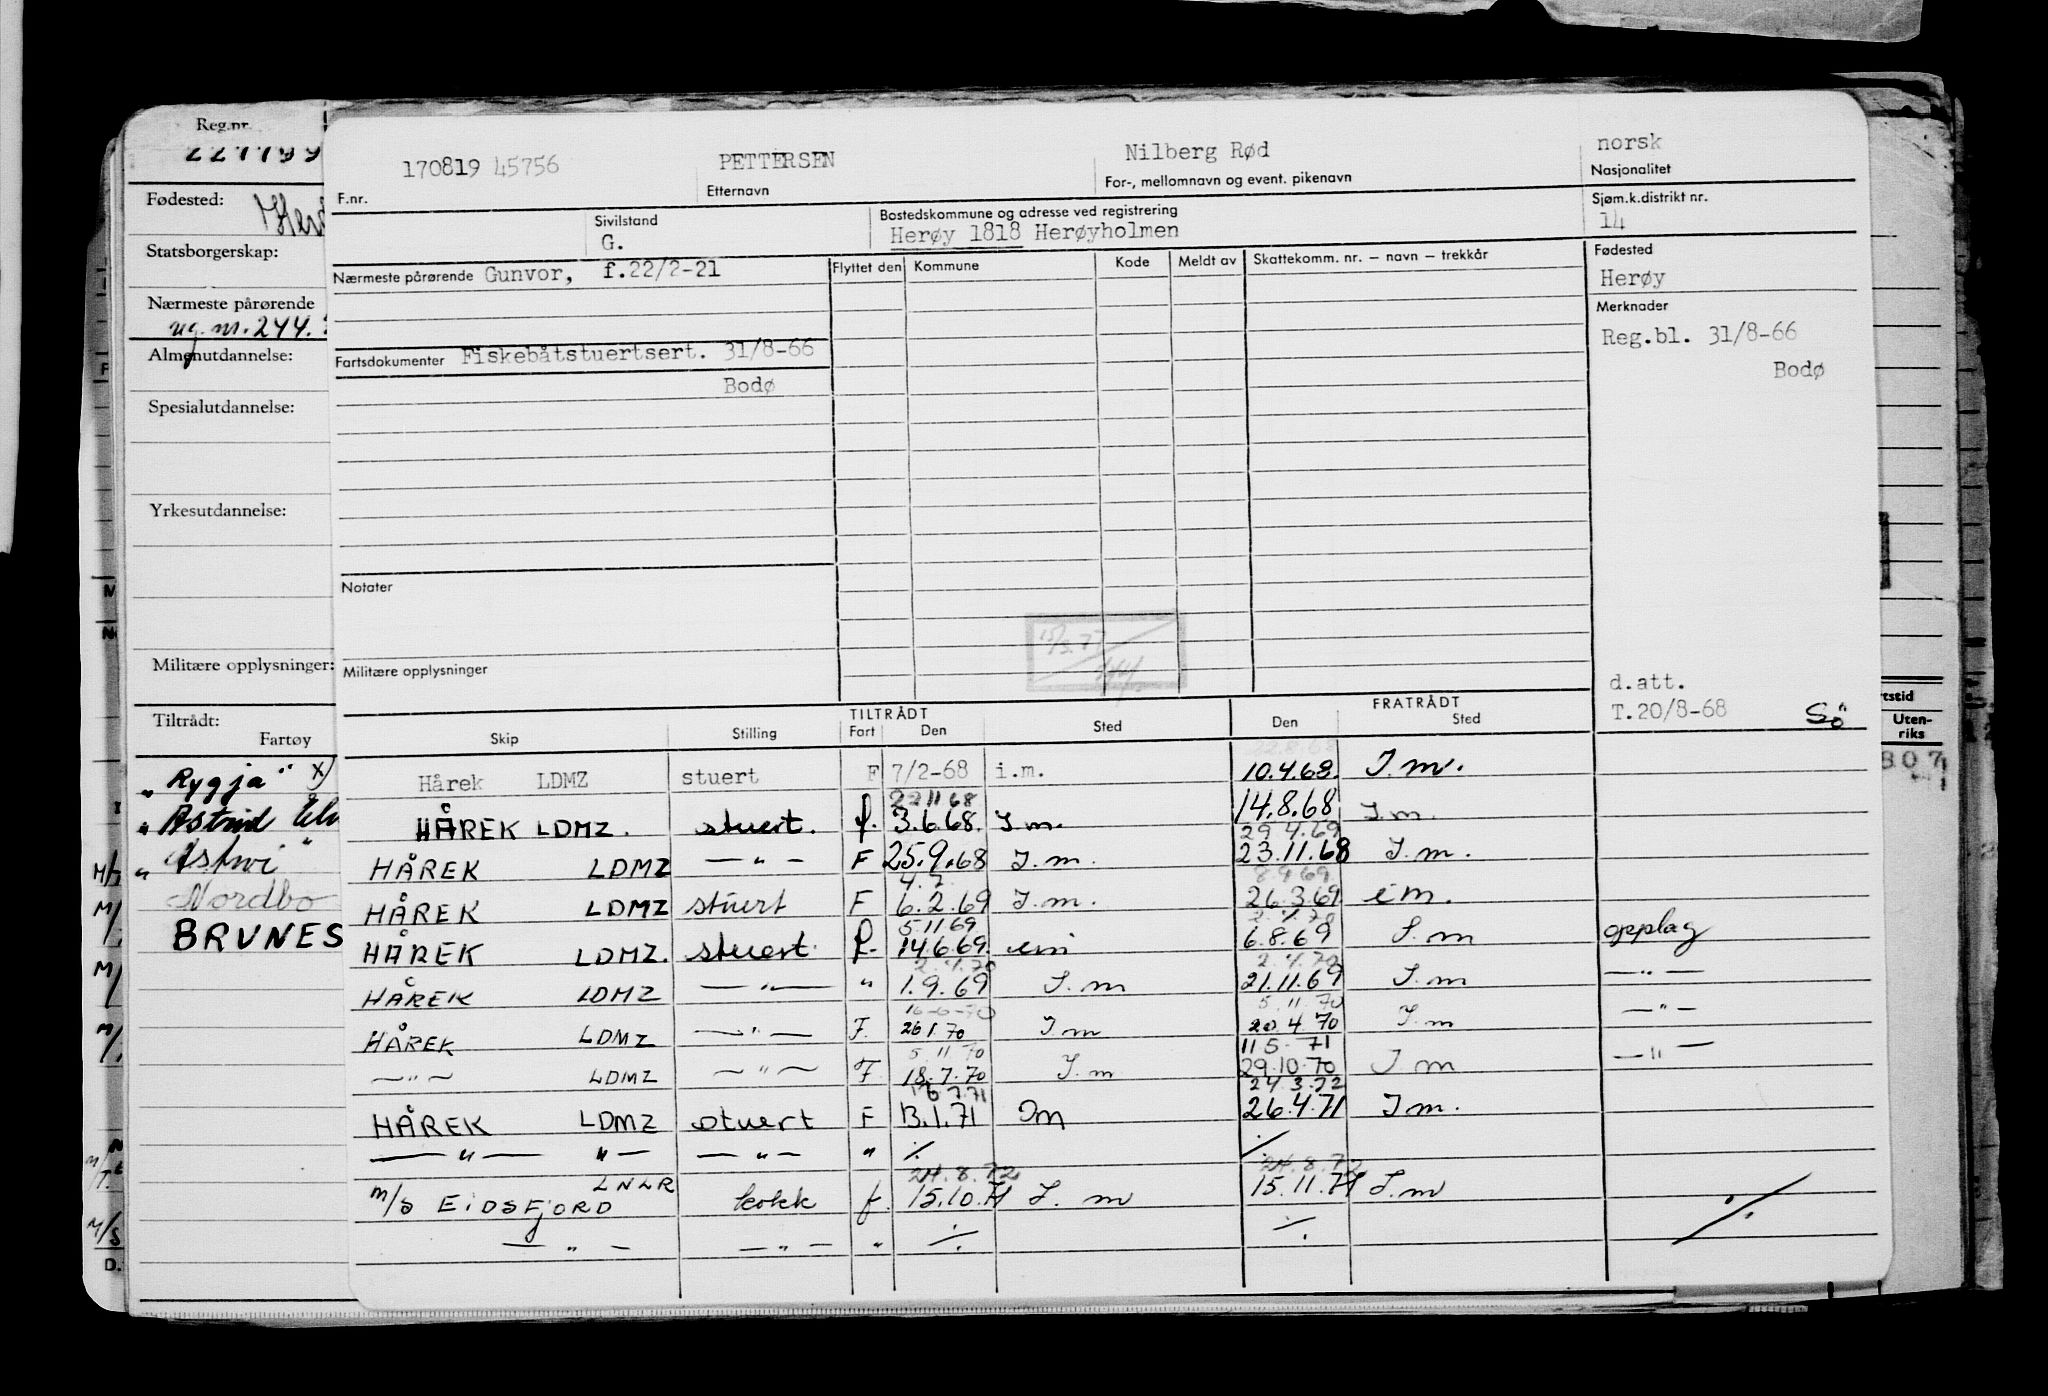 Reg.nr.
Fødested:
Statsborgerskap:
Nærmeste pårørende
Almenutdannelse:
Spesialutdannelse:
Yrkesutdannelse:
Militære opplysninger:
Tiltrådt:
Fartøy
„ Rygja" x)
„ Astrid
Nordbo
BRUNES
170819 45756
F.nr.
PETTERSEN
Etternavn
Nilberg Rød
For-, mellomnavn og event. pikenavn
norsk
Nasjonalitet
Sivilstand
G.
Bostedskommune og adresse ved registrering
Herøy 1818 Herøyholmen
Sjøm.k.distrikt nr.
14
Nærmeste pårørende Gunvor, f.22/2-21
Flyttet den Kommune Kode Meldt av Skattekomm. nr. – navn – trekkår
Fødested
Herøy
Merknader
Reg.bl. 31/8-66
Bodø
Fartsdokumenter Fiskebåtstuertsert. 31/8-66
Bodø
Notater
Militære opplysninger
d.att.
T.20/8-68 Sö
TILTRÅDT FRATRÅDT
Skip Stilling Fart Den Sted Den Sted
22.8.68
Hårek LDMZ stuert F 7/2-68 i.m. 10.4.68. I.m.
22 11 68
HÅREK LDMZ. stuert. f. 3.6.68. I m. 14.8.68 I.m.
29 4.69
HÅREK LDMZ — " — F 25.9.68 I.m. 23.11.68 I.m.
4.7. 8.9.69
HÅREK LDMZ stuert F 6.2.69 I.m. 26.3.69 im.
5 11 69 2.4.70
HÅREK LDMZ. stuert. f. 14.6.69. im 6.8.69 I.m opplag
2.4.70 2.4.70
HÅREK LDMZ — " — " 1.9.69 I.m 21.11.69 I.m — " —
16-6-70 5.11.70
HÅREK LDMZ — " — F. 26 1.70 I.m 20.4.70 I.m — " —
5 11 70 11 5. 71
— " — LDMZ — " — F. 18.7.70 I.m 29.10.70 I m — " —
16.7.71 24.3.72
HÅREK LDMZ stuert F 13.1.71 Im 26.4.71 I m.
— " — " — — " — " ./. ./.
24.8.72 24.8.72
LNLR
M/S EIDSFJORD kokk f. 15.10.71 I. m 15.11.71 I.m ./.
— " — — " — " ./. ./.
rtstid
Uten-
riks
807